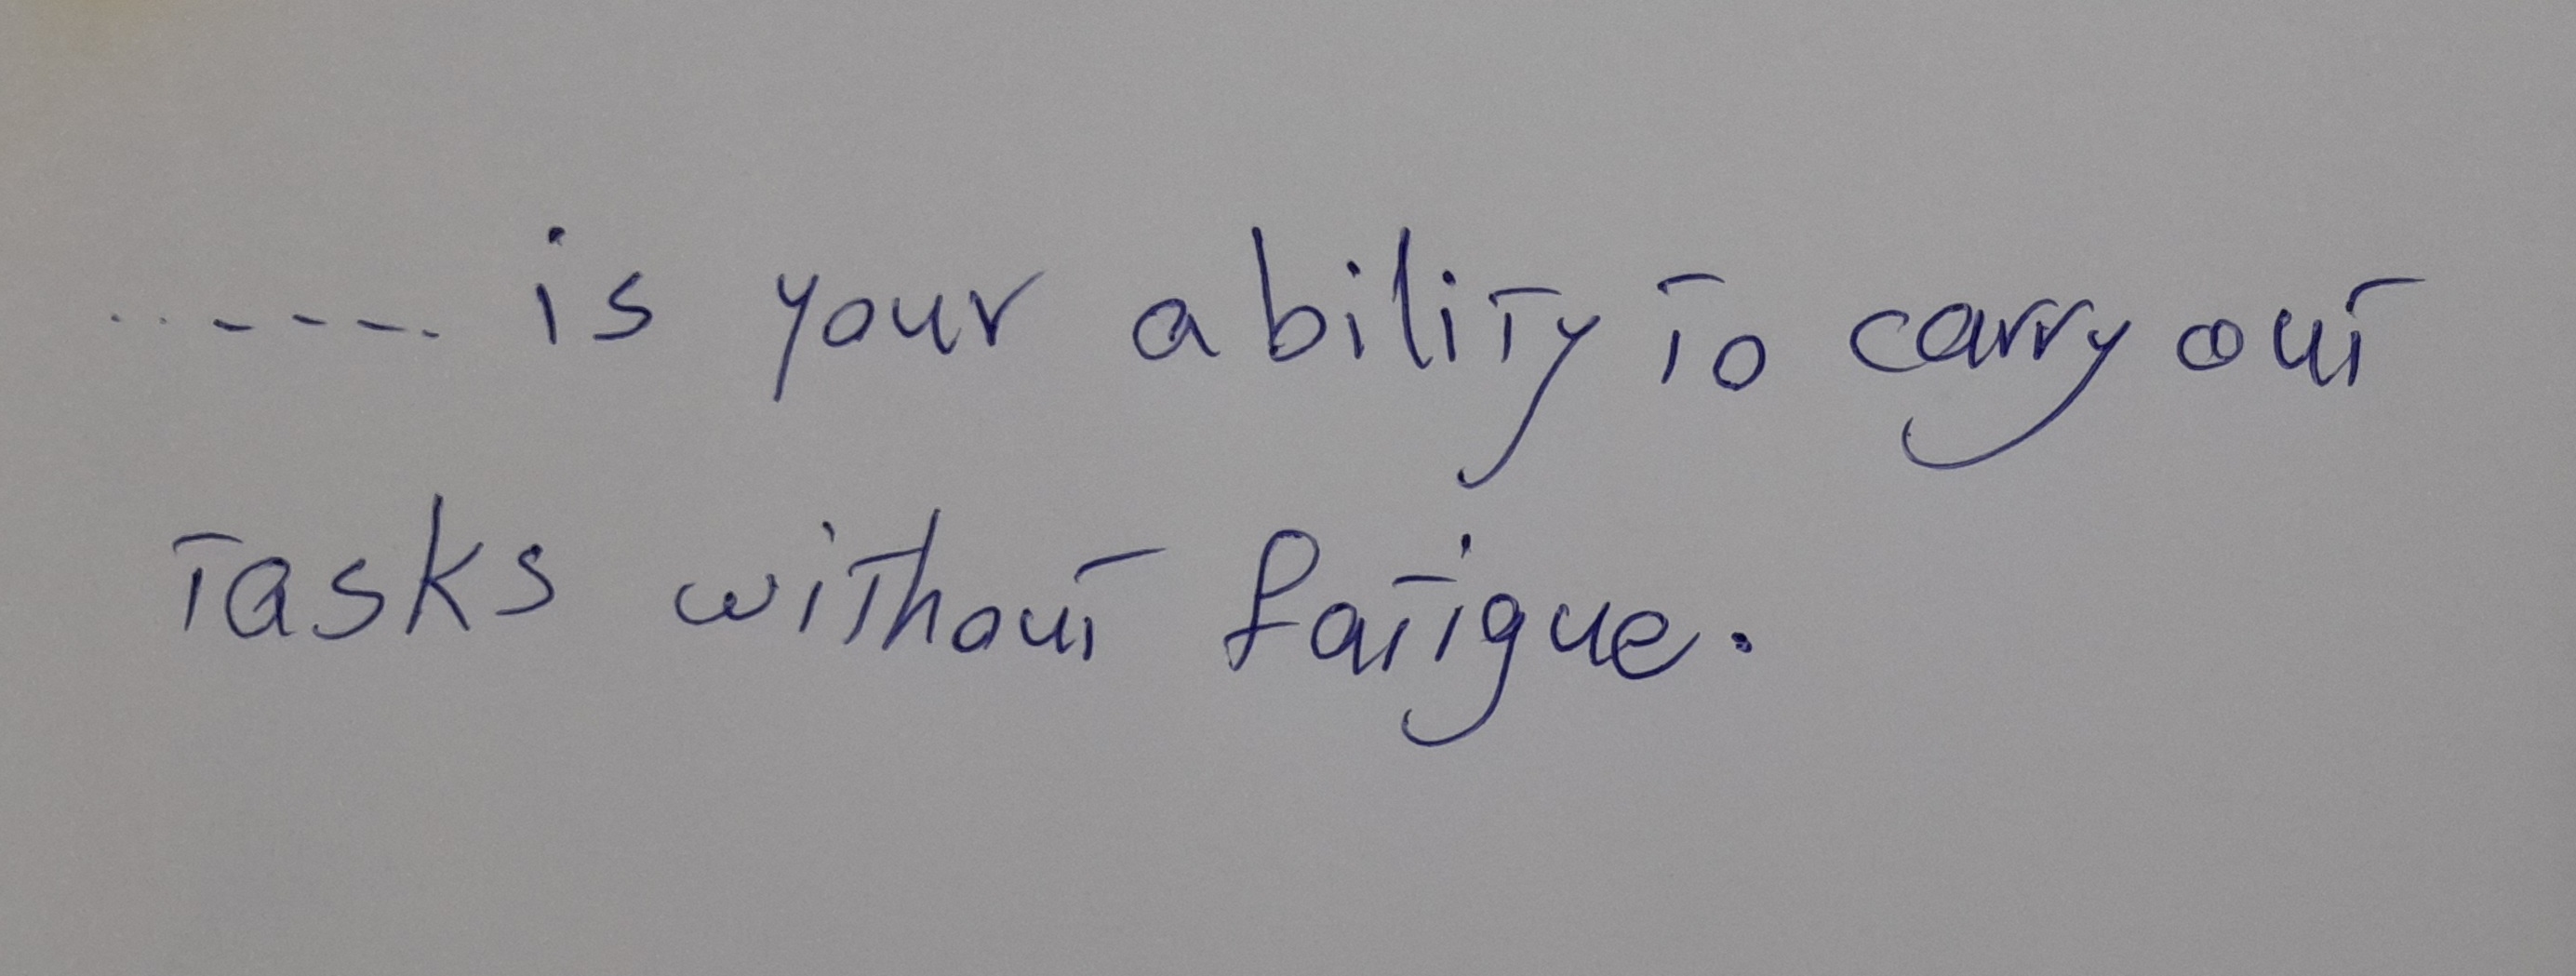 ..----. is your ability to carry out
tasks without fatigue.